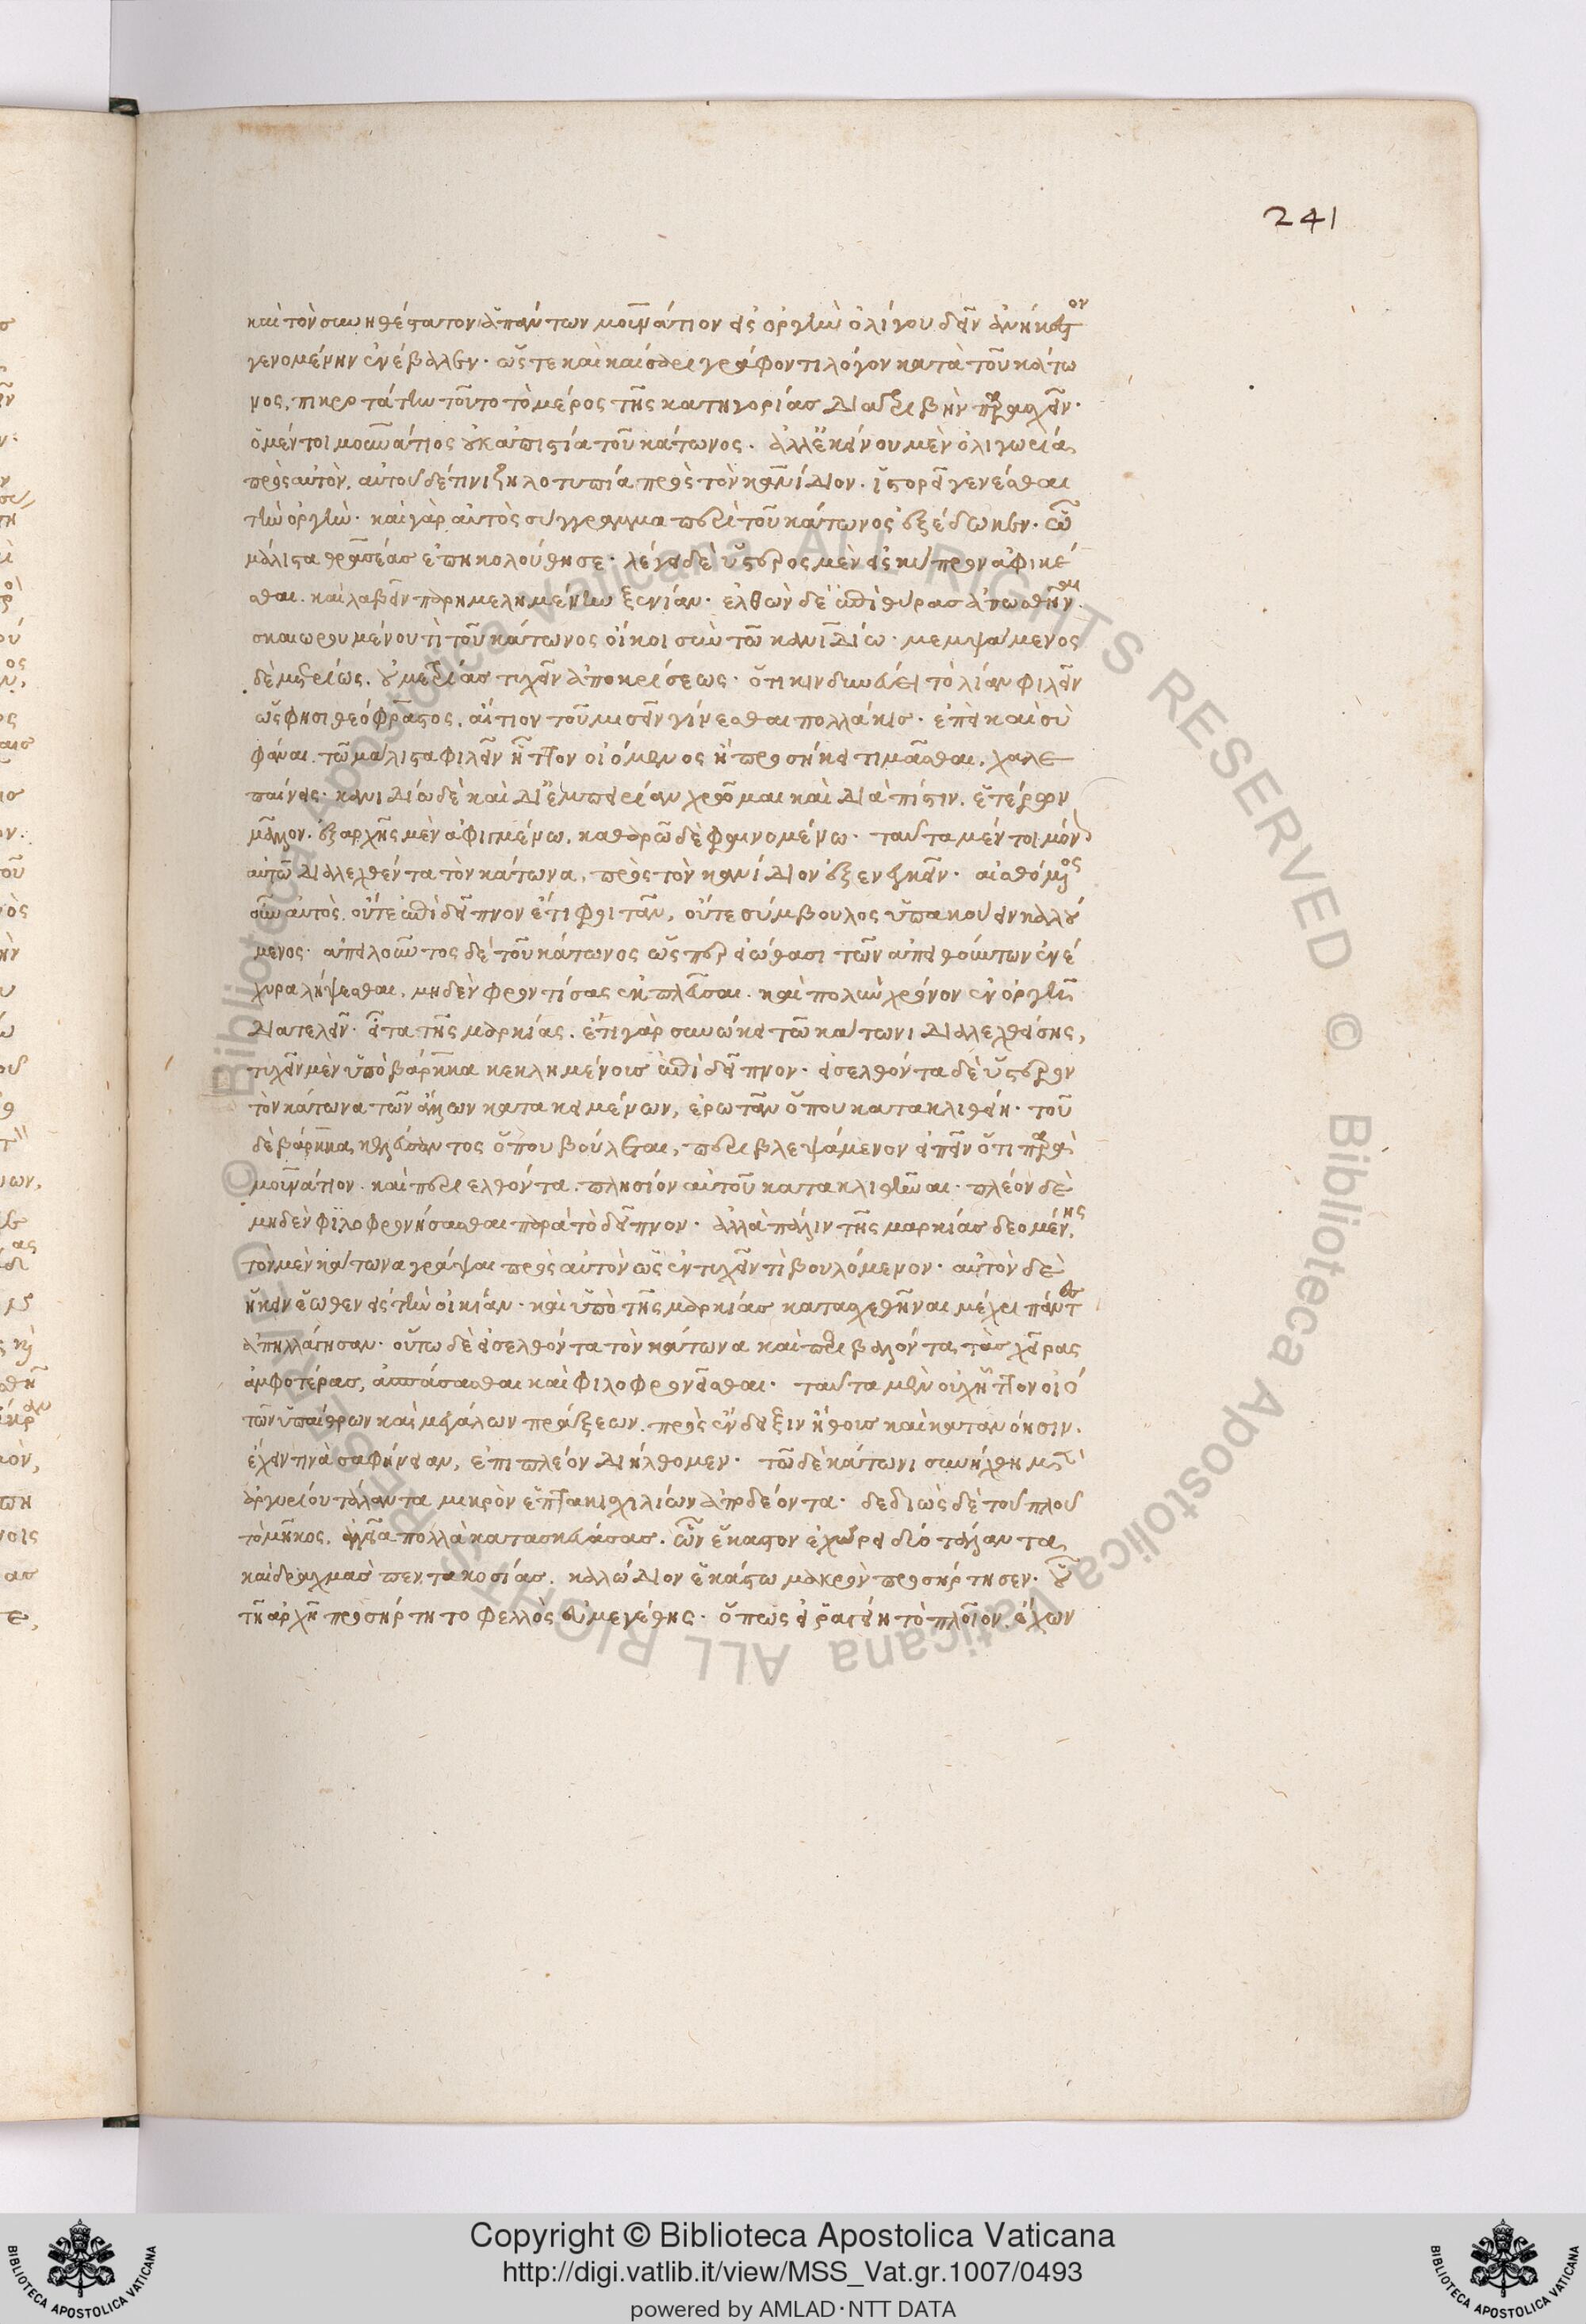 241
καὶ τὸν συνηθέστατον ἁπάντων μουνάτιον εἰς ὀργὴν ὀλίγου δεῖν ἀνήκεστον
γενομένην ἐνέβαλεν· ὥστε καὶ καίσαρι γράφοντι λόγον κατὰ τοῦ κάτω
νος, πικροτάτην τοῦτο τὸ μέρος τῆς κατηγορίας διατριβὴν παρασχεῖν·
ὁ μέντοι μουνάτιος οὐκ ἀπιστία τοῦ κάτωνος· ἀλλ' ἐκείνου μὲν ὀλιγωρία
πρὸς αὐτὸν. αὐτοῦ δέ τινι ζηλοτυπία πρὸς τὸν κανίδιον· ἱστορεῖ γενέσθαι
τὴν ὀργὴν· καὶ γὰρ αὐτὸς σύγγραμμα περὶ τοῦ κάτωνος ἐξέδωκεν· ὧ
μάλιστα θρασέας ἐπηκολούθησε· λέγει δὲ ὕστερος μὲν εἰς κύπρον ἀφικέ
σθαι. καὶ λαβεῖν παρημελημένην ξενίαν· ἐλθὼν δὲ ἐπὶ θύρας ἀπωσθῆναι.
σκαιωρουμένου τὶ τοῦ κάτωνος οἴκοι σὺν τῶ κανιδίω· μεμψάμενος
δὲ μετρίως. οὐ μετρίας τυχεῖν ἀποκρίσεως· ὅτι κινδυνεύει τὸ λίαν φιλεῖν
ὥς φησι θεόφραστος. αἴτιον τοῦ μισεῖν γίνεσθαι πολλάκις· ἐπεὶ καὶ σὺ
φάναι. τῶ μάλιστα φιλεῖν ἧττον οἰόμενος ἢ προσήκει τιμᾶσθαι. χαλε
παίνεις· κανιδίω δὲ καὶ δι' ἐμπειρίαν χρῶμαι καὶ διὰ πίστιν. ἑτέρων
μᾶλλον. ἐξαρχῆς μὲν ἀφιγμένω. καθαρῶ δὲ φαινομένω· ταῦτα μέντοι μόνον
αὐτῶ διαλεχθέντα τὸν κάτωνα, πρὸς τὸν κανίδιον ἐξενεγκεῖν· αἰσθόμενος
οὖν αὐτὸς. οὔτε ἐπὶ δεῖπνον ἔτι φοιτᾶν, οὔτε σύμβουλος ὑπακούειν καλού
μενος· ἀπειλοῦντος δὲ τοῦ κάτωνος ὥσπερ εἰώθασι τῶν ἀπειθούντων ἐνέ
χυρα λήψεσθαι. μηδὲν φροντίσας ἐκπλεῦσαι. καὶ πολὺν χρόνον ἐν ὀργῆ
διατελεῖν· εἶτα τῆς μαρκίας. ἔτι γὰρ συνώκει τῶ κάτωνι διαλεχθείσης,
τυχεῖν μὲν ὑπὸ βάρκα κεκλημένους ἐπὶ δεῖπνον· εἰσελθόντα δὲ ὕστερον
τὸν κάτωνα τῶν ἄλλων κατακειμένων, ἐρωτᾶν ὅπου κατακλιθείη· τοῦ
δὲ βάρκα κελεύσαντος ὅπου βούλεται, περιβλεψάμενον εἰπεῖν ὅτι παρὰ
μουνάτιον. καὶ περιελθόντα. πλησίον αὐτοῦ κατακλιθῆναι· πλέον δὲ
μηδὲν φιλοφρονήσασθαι παρὰ τὸ δεῖπνον· ἀλλὰ πάλιν τῆς μαρκίας δεομένης.
τὸν μὲν κάτωνα γράψαι πρὸς αὐτὸν ὡς ἐντυχεῖν τὶ βουλόμενον· αὐτὸν δὲ
ἥκειν ἕωθεν εἰς τὴν οἰκίαν· καὶ ὑπὸ τῆς μαρκίας κατασχεθῆναι μέχρι πάντες
ἀπηλλάγησαν· οὕτω δὲ εἰσελθόντα τὸν κάτωνα καὶ περιβαλόντα τὰς χεῖρας
ἀμφοτέρας, ἀσπάσασθαι καὶ φιλοφρονεῖσθαι· ταῦτα μὲν οὐχ ἧττον οἰό
τῶν ὑπαίθρων καὶ μεγάλων πράξεων. πρὸς ἔνδειξιν ἤθους καὶ κατανόησιν.
ἔχειν τινὰ σαφήνειαν, ἐπιπλέον διήλθομεν· τῶ δὲ κάτωνι συνήχθη μὲν
ἀργυρίου τάλαντα μικρὸν ἑπτακισχιλίων ἀποδέοντα· δεδιὼς δὲ τοῦ πλοῦ
τὸ μῆκος. ἀγγεῖα πολλὰ κατασκευάσας. ὧν ἕκαστον ἐχώρει δύο τάλαντα
καὶ δραχμὰς πεντακοσίας. καλώδιον ἑκάστω μακρὸν προσήρτησεν· οὗ
τῆ ἀρχῆ προσήρτητο φελλὸς εὐμεγέθης· ὅπως εἰ ῥαγείη τὸ πλοῖον. ἔχων
Copyright © Biblioteca Apostolica Vaticana
http://digi.vatlib.it/view/MSS_Vat.gr.1007/0493
powered by AMLAD·NTT DATA